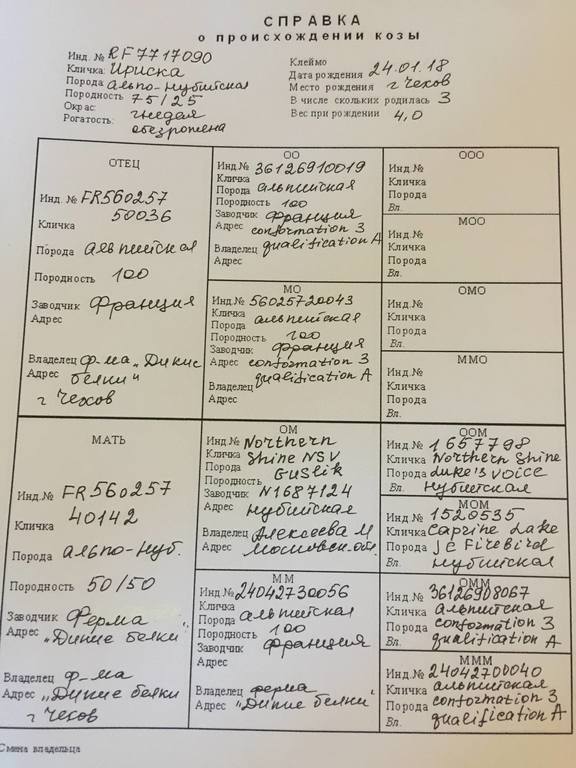 СПРАВКА
о происхождении козы
Инд. № RF7717090
Кличка: Ириска
Порода альпо-нубийская
Породность 75/25
Окрас: гнедая
Рогатость: обезрожена
Клеймо
Дата рождения 24.01.18
Место рождения г Чехов
В числе скольких родилась 3
Вес при рождении 4,0
ОТЕЦ
Инд. № FR560257
50036
Кличка
Порода альпийская
Породность 100
Заводчик Франция
Адрес
Владелец ф-ма „Дикие
Адрес белки"
г Чехов
ОО
Инд.№ 36126910019
Кличка
Порода альпийская
Породность 100
Заводчик Франция
Адрес conformation 3
Владелец qualification A
Адрес
МО
Инд.№ 56025720043
Кличка
Порода альпийская
Породность 100
Заводчик Франция
Адрес conformation 3
Владелец qualification A
Адрес
ООО
Инд.№
Кличка
Порода
Вл.
МОО
Инд.№
Кличка
Порода
Вл.
ОМО
Инд.№
Кличка
Порода
Вл.
ММО
Инд.№
Кличка
Порода
Вл.
МАТЬ
Инд.№ FR560257
40142
Кличка
Порода альпо-нуб.
Породность 50/50
Заводчик Ферма
Адрес „Дикие белки"
Владелец ф-ма
Адрес „Дикие белки
г Чехов
ОМ
Инд.№ Northern
Кличка Shine NSV
Порода Guslik
Породность
Заводчик N1687124
Адрес Нубийская
Владелец Алексеева М
Адрес Московская обл.
ММ
Инд.№ 24042730056
Кличка
Порода альпийская
Породность 100
Заводчик Франция
Адрес
Владелец ферма
Адрес „Дикие белки"
ООМ
Инд.№ 1657798
Кличка Northern Shine
Порода Luke's Voice
Вл. Нубийская
МОМ
Инд.№ 1520535
Кличка Caprine Lake
Порода JC Firebird
Вл. Нубийская
ОММ
Инд.№ 36126908067
Кличка альпийская
Порода conformation 3
Вл. qualification A
МММ
Инд.№ 24042700040
Кличка альпийская
Порода conformation 3
Вл. qualification A
Смена владельца